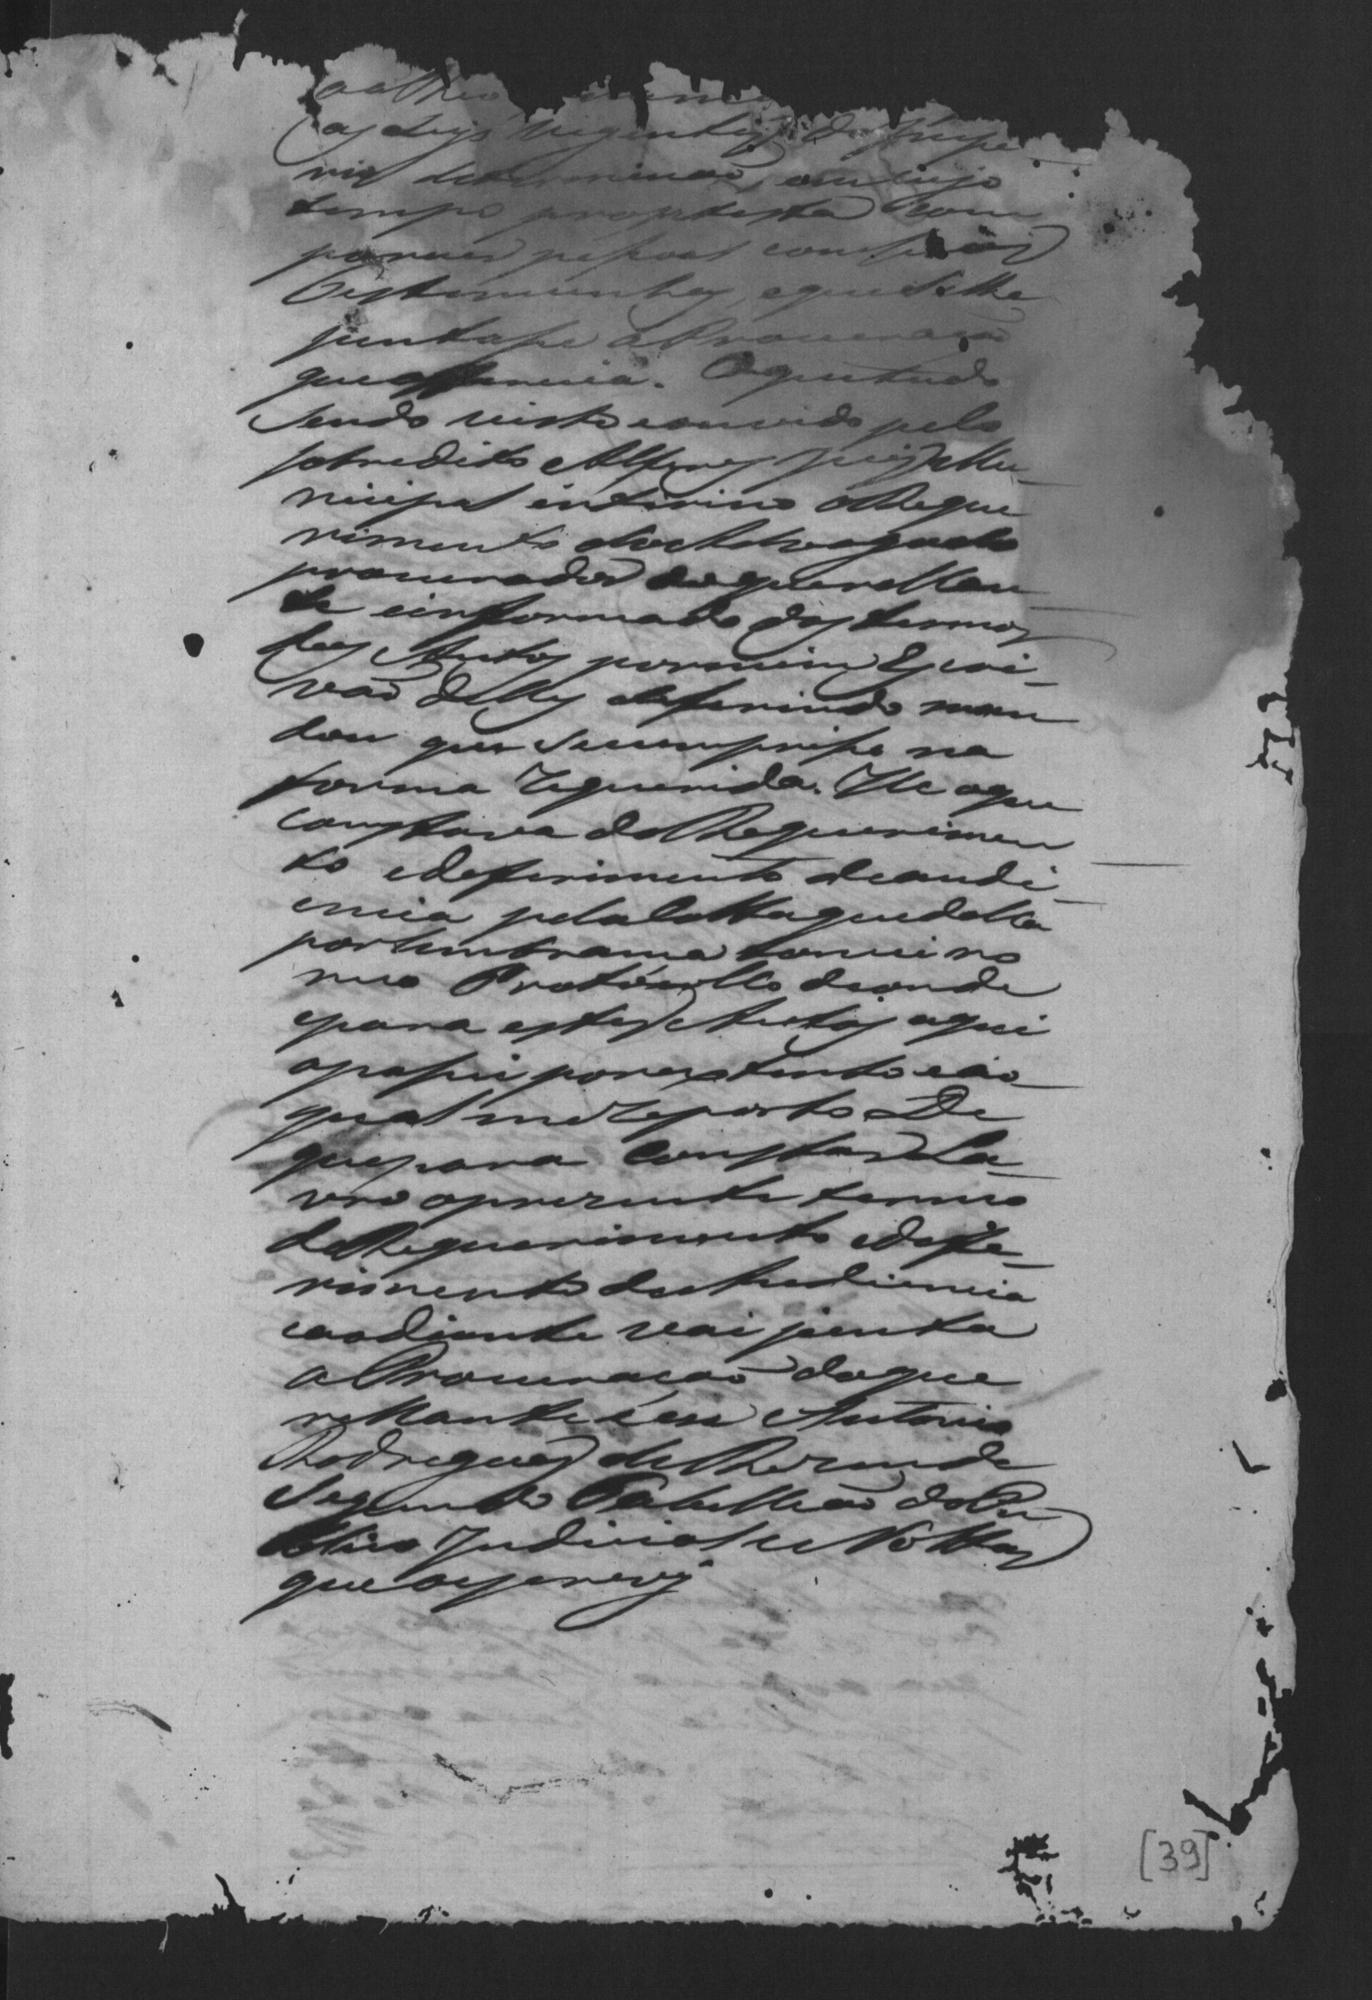 as Leys vigentes do Impe
rio determinão, em cujo
tempo protesta com
parecer pessoal com suas
Testemunhas, e que se lhe
juntasse a Procuração
que offerecia. O que tudo
sendo visto e ouvido pelo
sobredito Alferes Juiz Mu-
nicipal interino o Reque
rimento do Advogado
procurador do querellan-
te e informado dos termos
dos Autos por mim Escri-
vão delles deferindo man
dou que se cumprisse na
forma requerida. He o que
constava do Requerimen
to e deferimento de audi-
encia pela Cotta que delle
por lembrança tomei no
meo Protocollo de onde
e para estes Autos aqui
o passei por extenso e ao
qual me reporto De
que para constar La-
vro o prezente termo
de Requerimento e defe-
rimento de Audiencia
e ao diante vai junta
a Procuração do que
rellante e eu Antonio
Rodrigues de Rezende
Segundo Tabellião do Pu-
blico Judicial e Nottas
que o escrevy
[39]